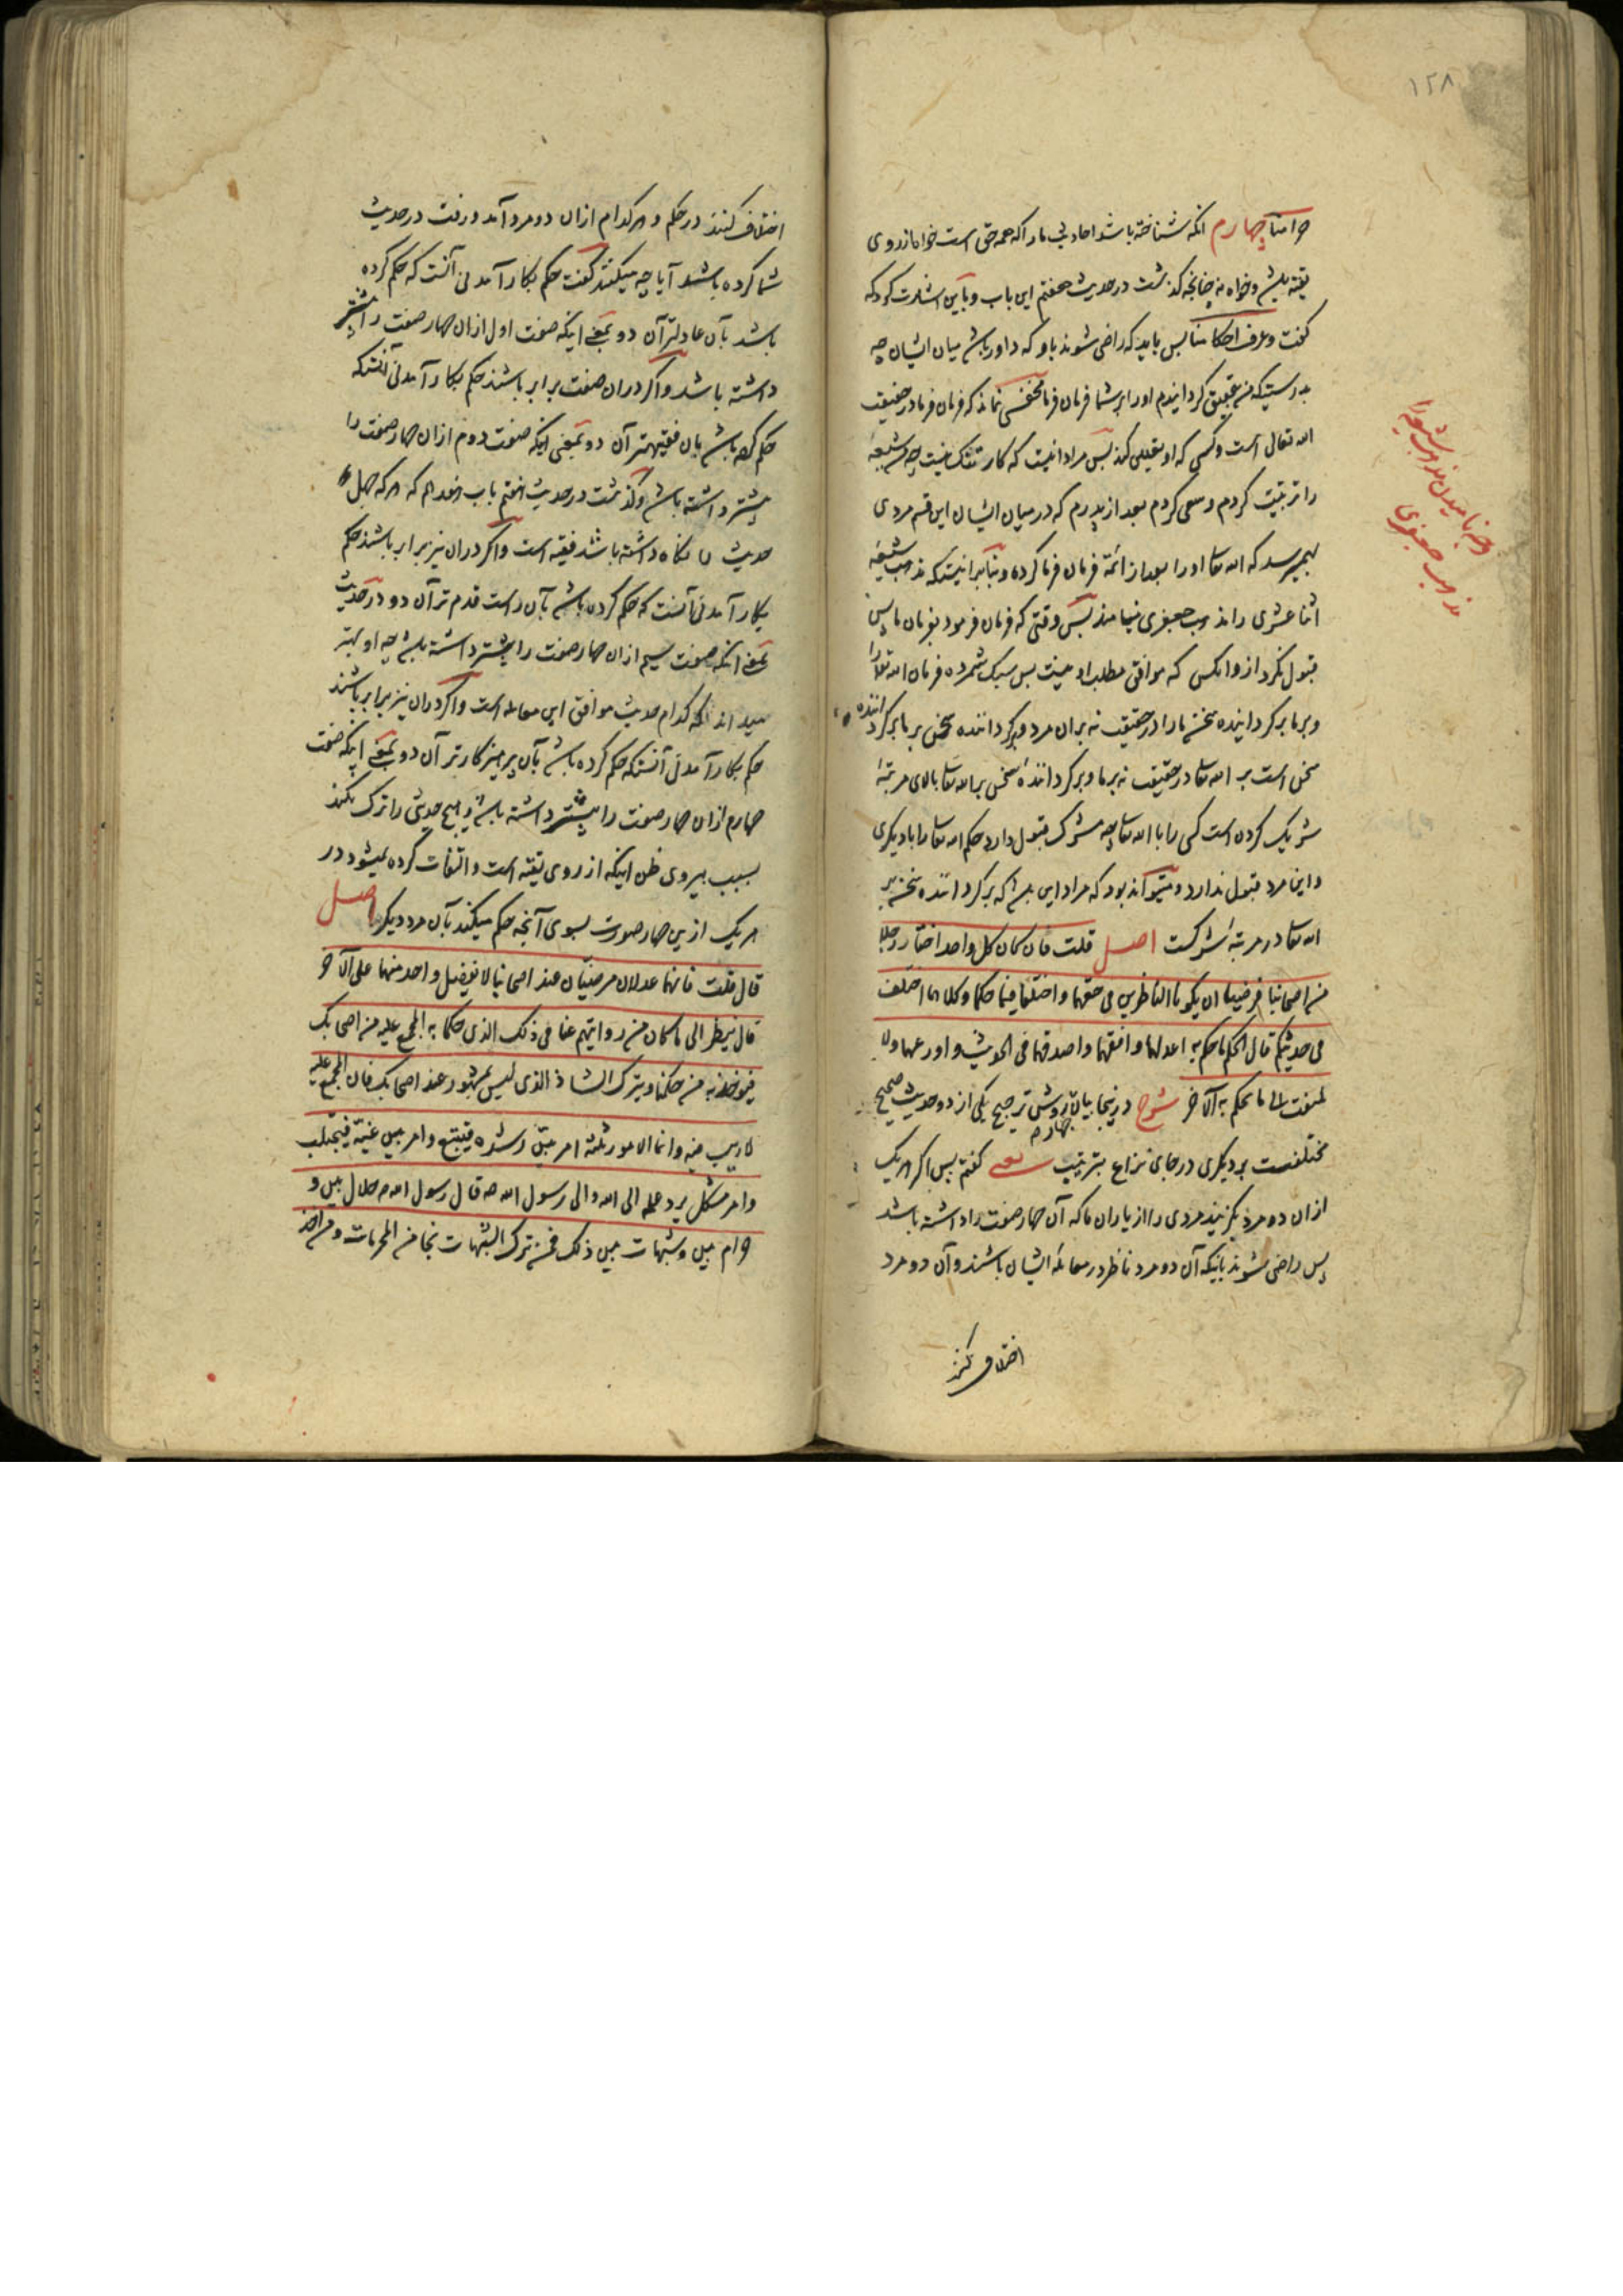 ۱۲۸
وحرامنا چهارم آنکه شناخته باشد احادیث ما را که همه حق است خواه از روی
تقیه باشد و خواه نه چنانچه گذشت در حدیث هفتم این باب و باین اشارت کرد که
گفت وعرف احکامنا پس باید که راضی شوند باو که داور باشد میان ایشان چه
بدرستیکه من بتحقیق گردانیدم او را بر شما فرمان فرما مخفی نماند که فرمان فرما در حقیقت
الله تعالی است و کسی که او تعیین کند پس مراد اینست که کار تنگ نیست چه من شیعه
را تربیت کردم و سعی کردم بعد از پدرم که در میان ایشان این قسم مردی
بهم رسد که الله تعالی او را بعد از ائمه فرمان فرما کرده و بنا بر اینست که مذهب شیعه
اثنا عشری را مذهب جعفری مینامند پس وقتی که فرمان فرمود بفرمان ما پس
قبول نکرد از او آنکس که موافق مطلب او نیست پس سبک شمرده فرمان الله تعالی را
و بر ما برگرداننده سخن ما را در حقیقت نه بر آن مرد و برگرداننده سخن بر ما برگرداننده
سخن است بر الله تعالی در حقیقت نه بر ما و برگرداننده سخن بر الله تعالی بالای مرتبه
شریک کردن است کسی را با الله تعالی چه مشرک قبول دارد حکم الله تعالی را با دیگری
و این مرد قبول ندارد و میتواند بود که مراد این باشد که برگرداننده سخن بر
الله تعالی در مرتبه شرکست اصل قلت فان کان کل واحد اختار رجلا
من اصحابنا فرضیا ان یکونا الناظرین فی حقهما واختلفا فیما حکما وکلاهما اختلفا
فی حدیثکم قال الحکم ما حکم به اعدلهما وافقههما واصدقهما فی الحدیث واورعهما ولا
یلتفت الی ما یحکم به الآخر شرح در اینجا بیان روش ترجیح یکی از دو حدیث صحیح
مختلفست بر دیگری در جای نزاع بترتیب چهارم یعنی گفتم پس اگر هر یک
از آن دو مرد بگزینند مردی را از یاران ما که آن چهار صفت را داشته باشد
پس راضی شوند باینکه آن دو مرد ناظر در معامله ایشان باشند و آن دو مرد
اختلاف کنند
وجه نامیدن مذهب شیعه را
مذهب جعفری
اختلاف کنند در حکم و هر کدام از آن دو مرد آمد و رفت در حدیث
شما کرده باشد آیا چه میکنند گفت حکم بکار آمدنی آنست که حکم کرده
باشد بآن عادلتر آن دو یعنی اینکه صفت اول از آن چهار صفت را بیشتر
داشته باشد و اگر در آن صفت برابر باشند حکم بکار آمدنی آنستکه
حکم کرده باشد بآن فقیهتر آن دو یعنی اینکه صفت دوم از آن چهار صفت را
بیشتر داشته باشد و گذشت در حدیث هفتم باب هفدهم که هر که چهل
حدیث ما نگاه داشته باشد فقیه است و اگر در آن نیز برابر باشند حکم
بکار آمدنی آنست که حکم کرده باشد بآن راست قدم تر آن دو در حدیث
یعنی اینکه صفت سیم از آن چهار صفت را بیشتر داشته باشد چه او بهتر
میداند که کدام حدیث موافق این معامله است و اگر در آن نیز برابر باشند
حکم بکار آمدنی آنستکه حکم کرده باشد بآن پرهیزکارتر آن دو یعنی اینکه صفت
چهارم از آن چهار صفت را بیشتر داشته باشد و هیچ حدیثی را ترک نکند
بسبب پیروی ظن اینکه از روی تقیه است و التفات کرده نمیشود در
هر یک ازین چهار صورت بسوی آنچه حکم میکند بآن مرد دیگر اصل
قال قلت فانهما عدلان مرضیان عند اصحابنا لا یفضل واحد منهما علی الآخر
قال ینظر الی ما کان من روایتهم عنا فی ذلک الذی حکما به المجمع علیه من اصحابک
فیؤخذ به من حکمنا ویترک الشاذ الذی لیس بمشهور عند اصحابک فان المجمع علیه
لا ریب فیه وانما الامور ثلثة امر بین رشده فیتبع وامر بین غیه فیجتنب
وامر مشکل یرد علمه الی الله والی رسول الله ص قال رسول الله ص حلال بین و
حرام بین وشبهات بین ذلک فمن ترک الشبهات نجا من المحرمات ومن اخذ